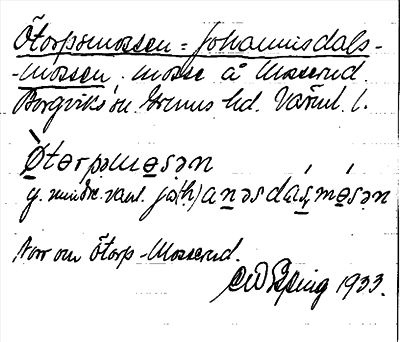 Ötorpsmossen = Johannisdals-
-mossen. mosse å Mosserud.
Borgviks sn. Grums hd. Värml. l.
Ò̱tərpsmo̱sən
y. mindre vanl. jo(h)anəsdáɭsmó̱sən
Norr om Ötorp - Mosserud.
1933.